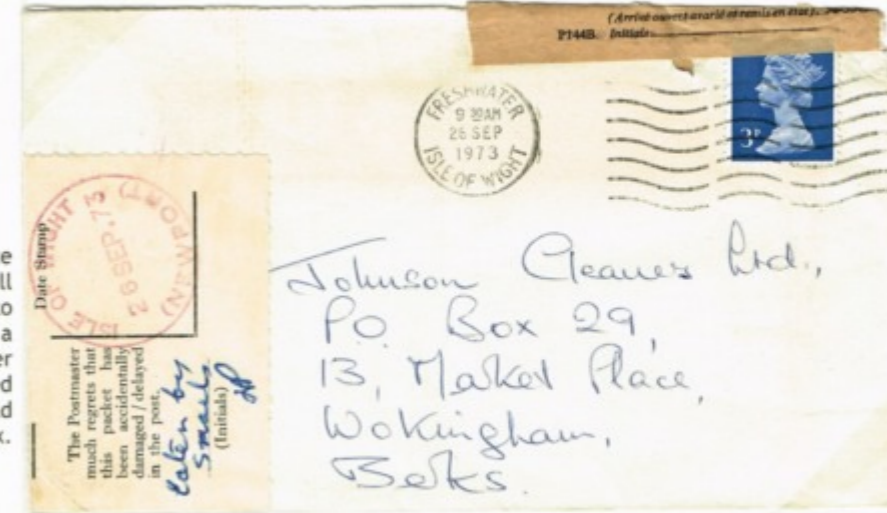 (Arrivé ouvert avarié et remis en état).
P144B. Initials
FRESHWATER
9 30AM
26 SEP
1973
ISLE OF WIGHT
3P
Date Stamp
ISLE OF WIGHT
26 SEP. 73
(NEWPORT)
The Postmaster
much regrets that
this packet has
been accidentally
damaged / delayed
in the post.
eaten by
snails
(Initials)
Johnson Cleaners Ltd.,
P.O. Box 29,
13, Market Place,
Wokingham,
Berks.